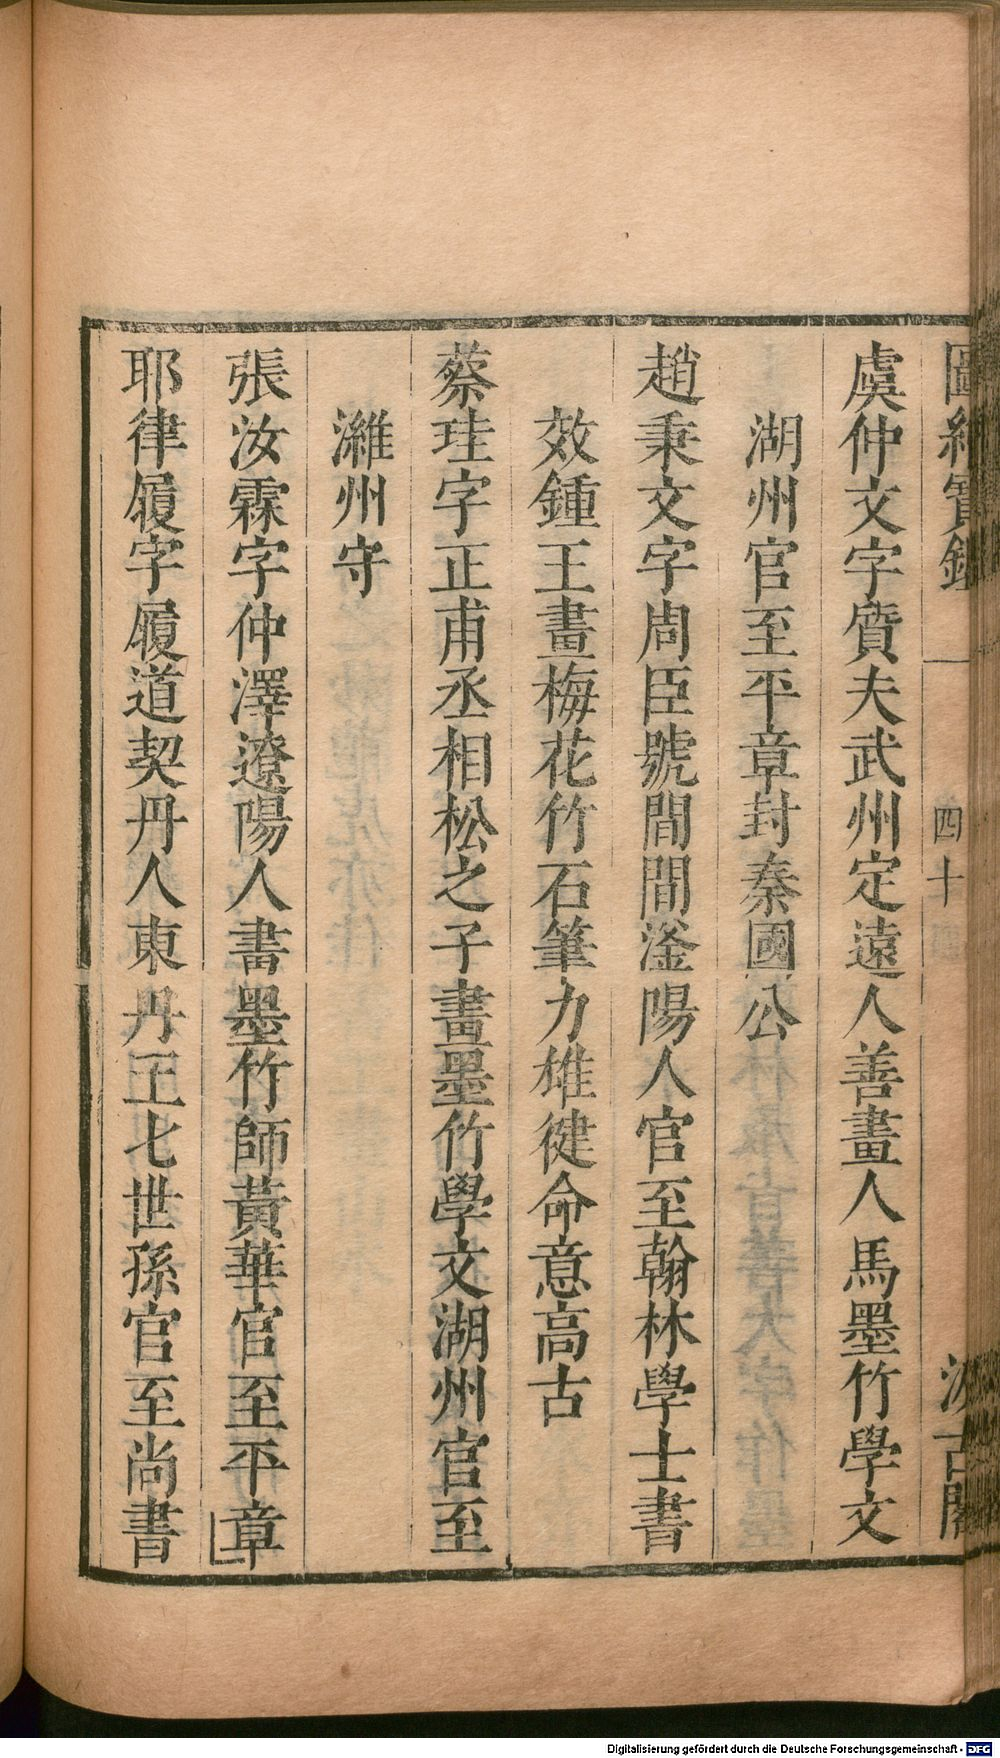 圖繪寶鑑 四十 汲古閣
虞仲文字賫夫武州定遠人善畫人馬墨竹學文
湖州官至平章封秦國公
趙秉文字周臣號閒閒滏陽人官至翰林學士書
效鍾王畫梅花竹石筆力雄健命意高古
蔡珪字正甫丞相松之子畫墨竹學文湖州官至
濰州守
張汝霖字仲澤遼陽人畵墨竹師黃華官至平章
耶律履字履道契丹人東丹王七世孫官至尚書
Digitalisierung gefördert durch die Deutsche Forschungsgemeinschaft - DFG